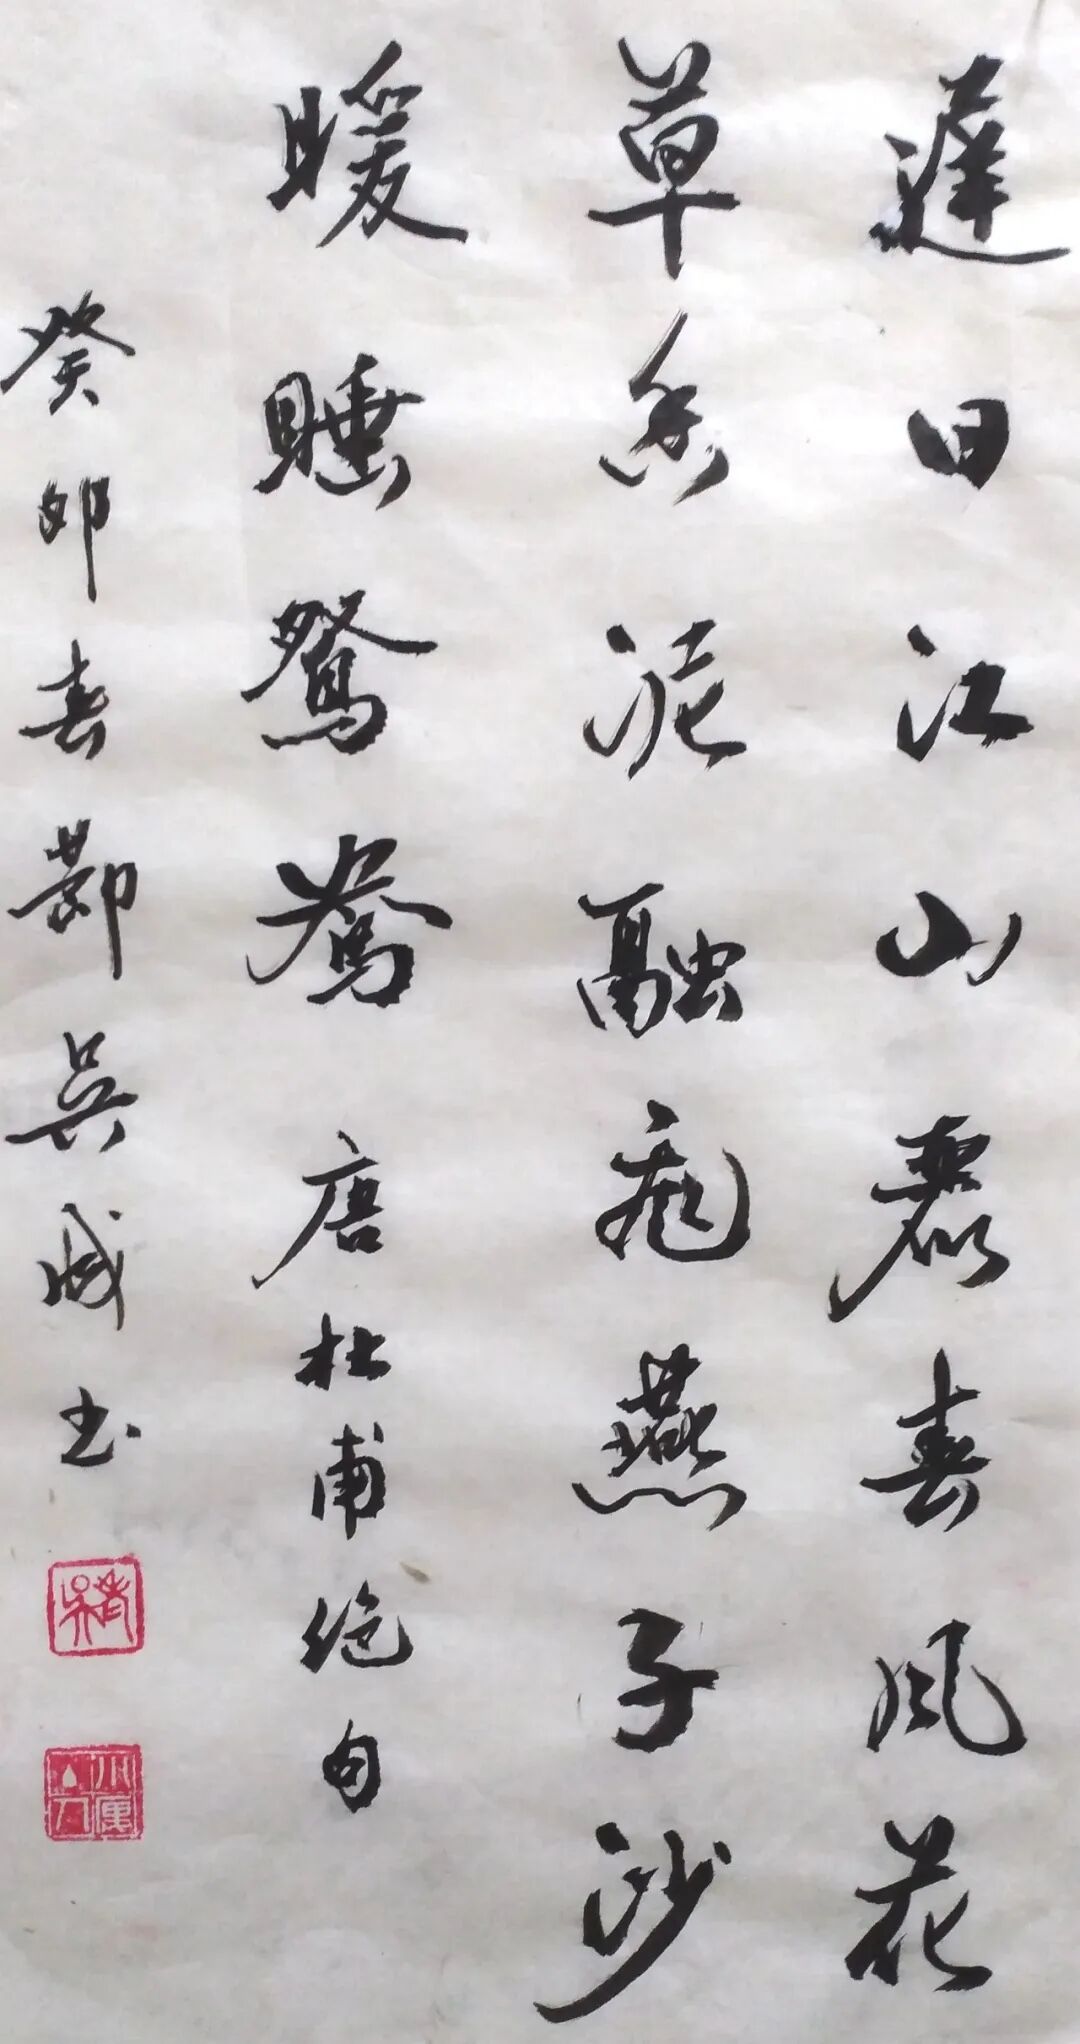 遲日江山麗春風花
草香泥融飛燕子沙
暖睡鴛鴦 唐杜甫絕句
癸卯春鄀吴成书